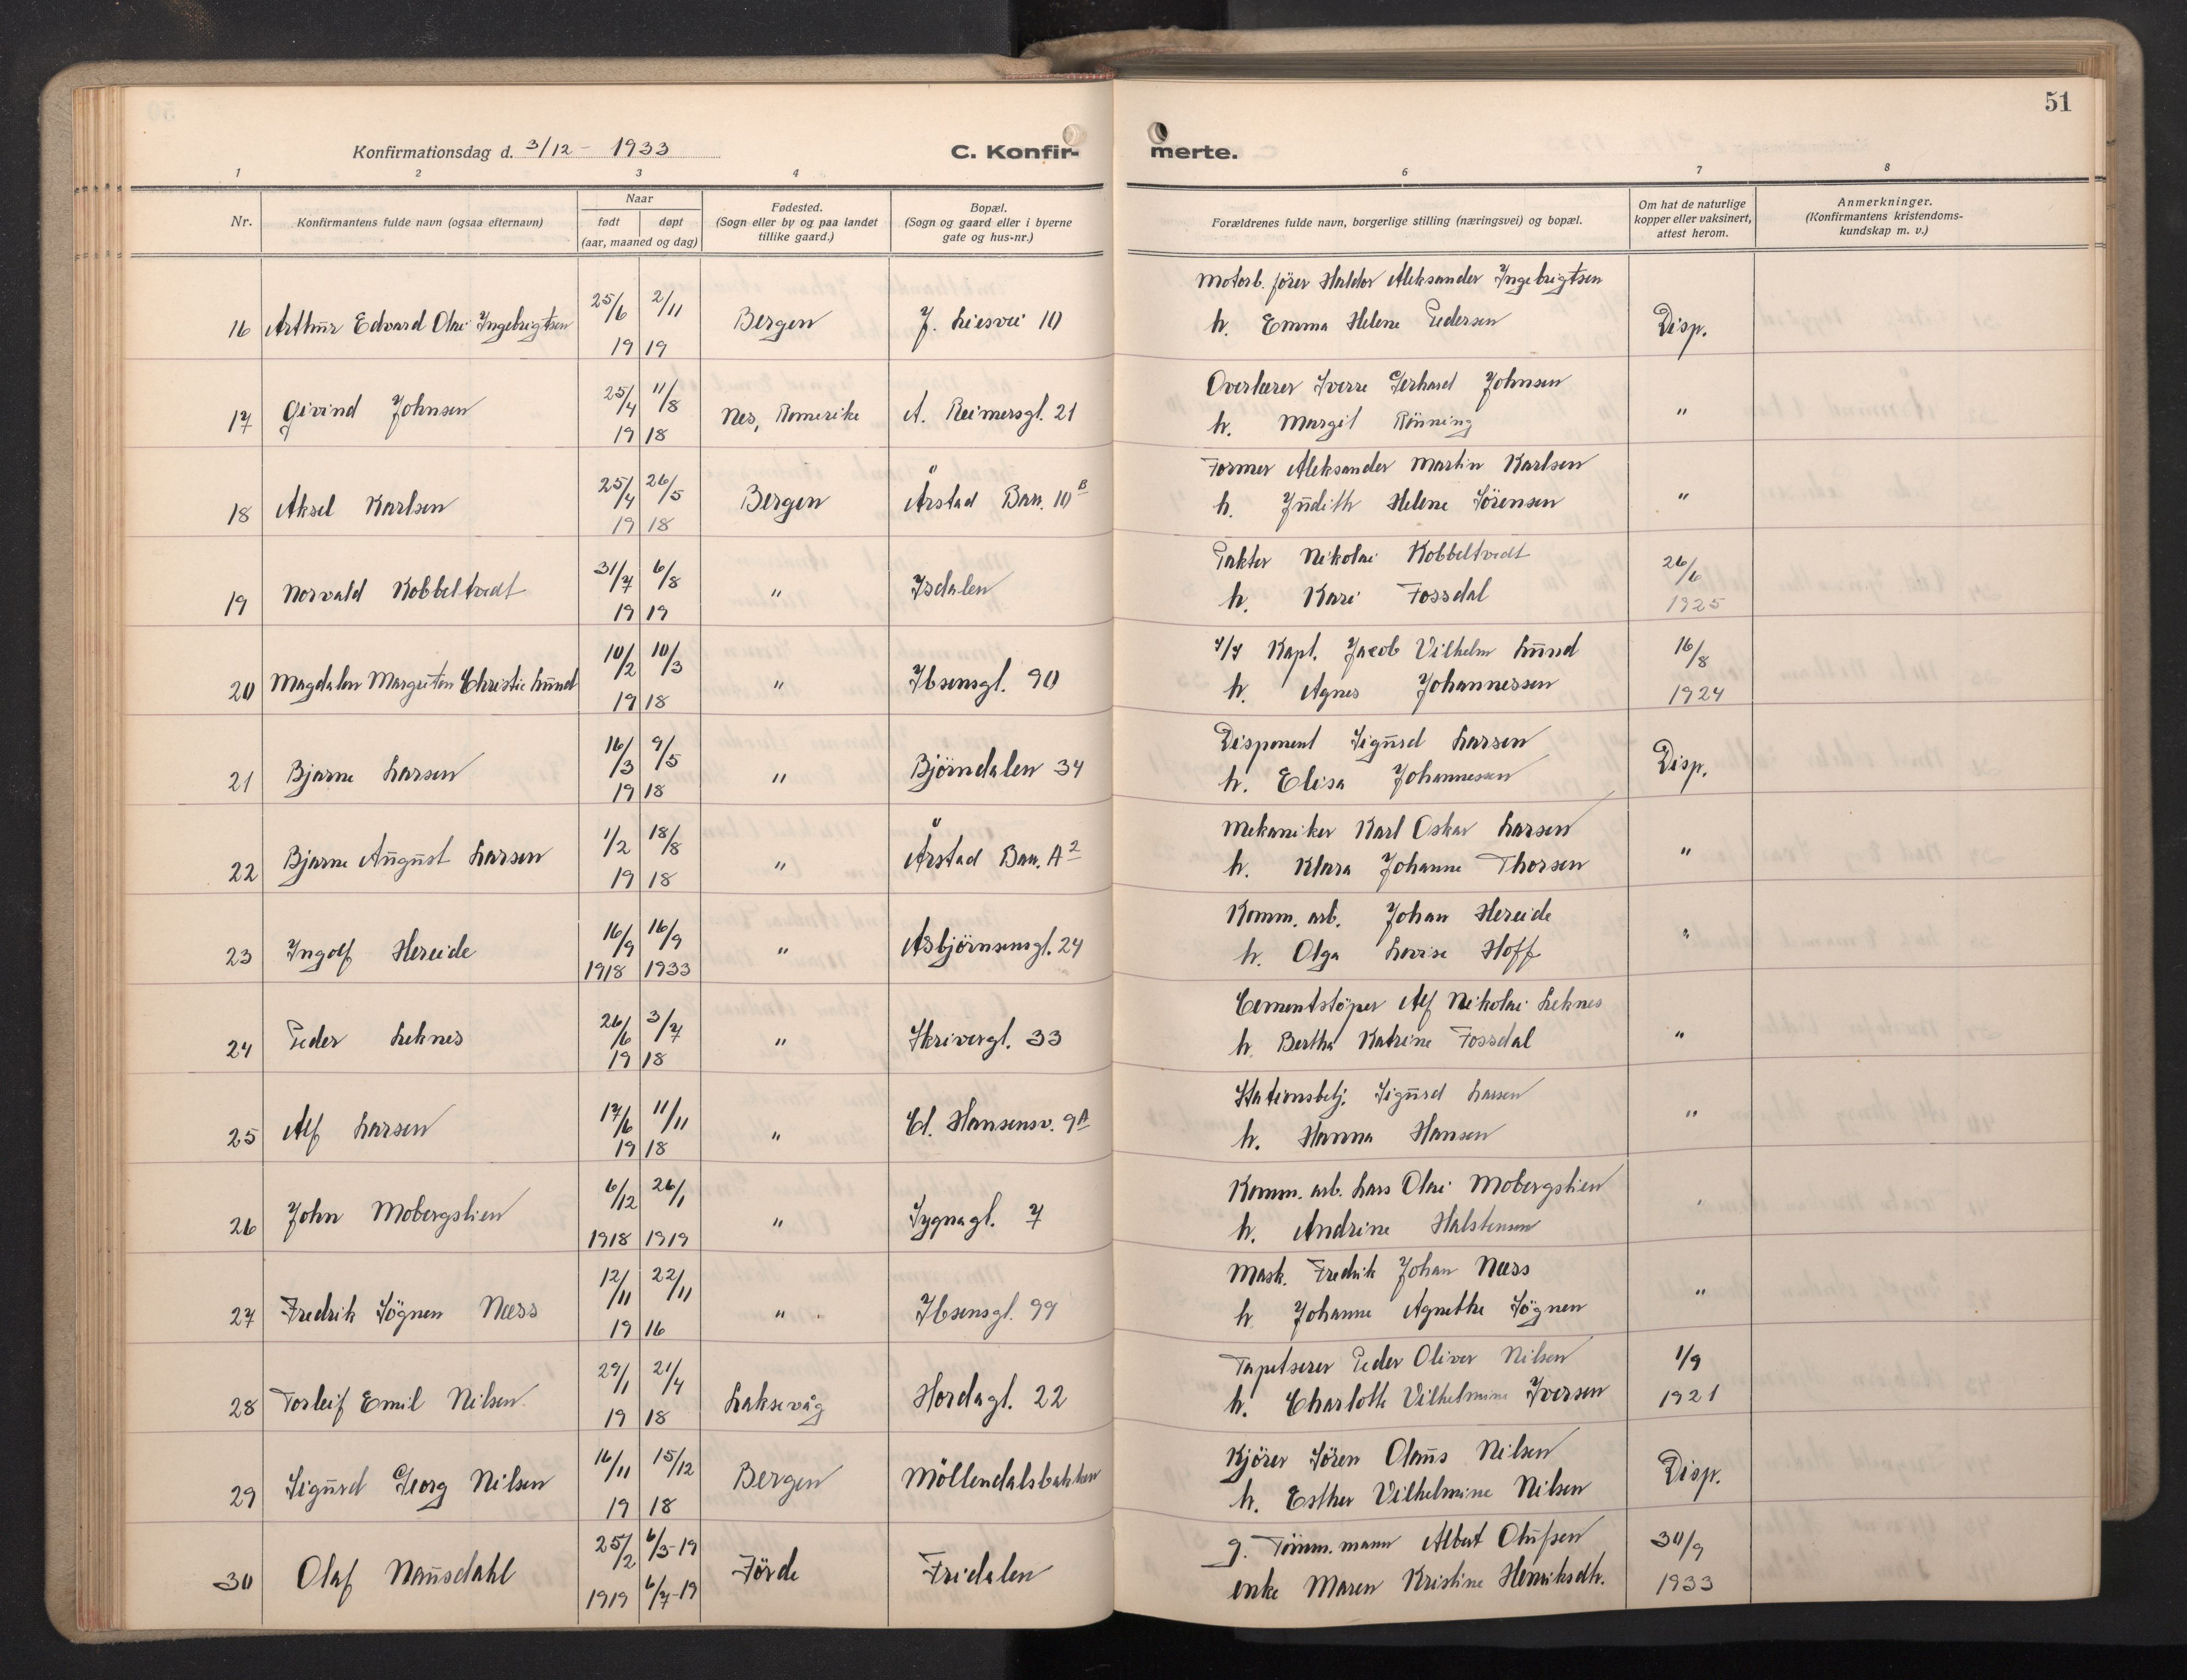 51
Konfirmationsdag d. 3/12 - 1933
C. Konfir- merte.
1 2 3 4 6 7 8
Nr.
Konfirmantens fulde navn (ogsaa efternavn)
Naar
født døpt
(aar, maaned og dag)
Fødested.
(Sogn eller by og paa landet
tillike gaard.)
Bopæl.
(Sogn og gaard eller i byerne
gate og hus-nr.)
Forældrenes fulde navn, borgerlige stilling (næringsvei) og bopæl.
Om hat de naturlige
kopper eller vaksinert,
attest herom.
Anmerkninger.
(Konfirmantens kristendoms-
kundskap m. v.)
25/6 2/11 Motorb. fører Haldor Aleksander Ingebrigtsen
16 Arthur Edvard Olai Ingebrigtsen Bergen J. Liesvei 10 h. Emma Helene Pedersen Disp.
19 19
25/4 11/8 Overlærer Sverre Gerhard Johnsen
17 Øivind Johnsen Nes, Romerike A. Reimersgt. 21 h. Margit Rönning "
19 18
25/4 26/5 Former Aleksander Martin Karlsen
18 Aksel Karlsen Bergen Årstad Bar. 10 B h. Judith Helene Sörensen "
19 18
31/7 6/8 Pakter Nikolai Kobbeltvedt 26/6
19 Norvald Kobbeltvedt " Isdalen h. Kari Fossdal 1925
19 19
10/2 10/3 Kapt. Jacob Vilhelm Lund 16/8
20 Magdalen Margreten Christie Lund " Ibsensgt. 90 h. Agnes Johannessen 1924
19 18
16/3 9/5 Disponent Sigurd Larsen
21 Bjarne Larsen " Björndalen 34 h. Elisa Johannessen Disp.
19 18
1/2 18/8 Mekaniker Karl Oskar Larsen
22 Bjarne August Larsen " Årstad Bar. A 2 h. Klara Johanne Thorsen "
19 18
16/9 16/9 Komm. arb. Johan Hereide
23 Ingolf Hereide " Asbjörnsensgt. 24 h. Olga Lovise Hoff "
1918 1933
26/6 3/7 Cementstöper Alf Nikolai Leknes
24 Peder Leknes " Skrivergt. 33 h. Bertha Katrine Fossdal "
19 18
17/6 11/11 Stationsbetj. Sigurd Larsen
25 Alf Larsen " Cl. Hansensv. 9A h. Hanna Hansen "
19 18
6/12 26/1 Komm. arb. Lars Olai Mobergslien
26 John Mobergslien " Sygnagt. 7 h. Andrine Halstensen "
1918 1919
12/11 22/11 Mask. Fredrik Johan Næss
27 Fredrik Sögnen Næss " Ibsensgt. 99 h. Johanne Agnethe Sögnen "
19 16
29/1 21/4 Tapetserer Peder Oliver Nilsen 1/9
28 Torleif Emil Nilsen Laksevåg Hordagt. 22 h. Charlotte Vilhelmine Iversen 1921
19 18
16/11 15/12 Kjörer Sören Olaus Nilsen
29 Sigurd Georg Nilsen Bergen Möllendalsbakken h. Esther Vilhelmine Nilsen Disp.
19 18
25/2 6/3-19 g. Tömm. mann Albert Olufsen 30/9
30 Olaf Nausdahl Förde Fridalen enke Maren Kristine Henriksdtr. 1933
1919 6/7-19